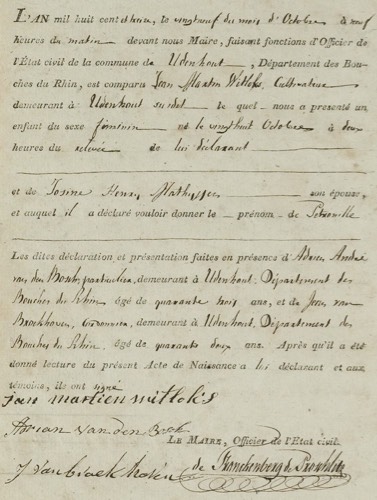 L'AN mil huit cent onze, le vingt neuf du mois d'Octobre à neuf
heures du matin devant nous Maire, faisant fonctions d'Officier de
l'État civil de la commune de Udenhout, Département des Bou-
ches du Rhin, est comparu Jean Martin Witloks, Cultivateur
demeurant à Udenhout le quel nous a presenté un
enfant du sexe féminin né le vingt huit Octobre à deux
heures de relevée de lui déclarant
et de Josine Henry Mathyssen son épouse,
et auquel il a déclaré vouloir donner le prénom de Petronille
Les dites déclaration et présentation faites en présence d'Adrien André
van den Bosch, particulier, demeurant à Udenhout, Département des
Bouches du Rhin âgé de quarante trois ans, et de Jean van
Broekhoven, demeurant à Udenhout, Département des
Bouches du Rhin, âgé de quarante deux ans. Après qu'il a été
donné lecture du présent Acte de Naissance a les déclarant et aux
témoins, ils ont signé
Jan martien witlok's
Adriaan Van den Bosch
LE MAIRE, Officier de l'Etat civil.
J van broekhoven